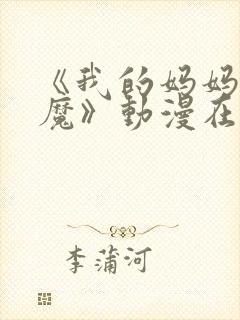 《我的妈妈
魔》動漫在
李蒲河